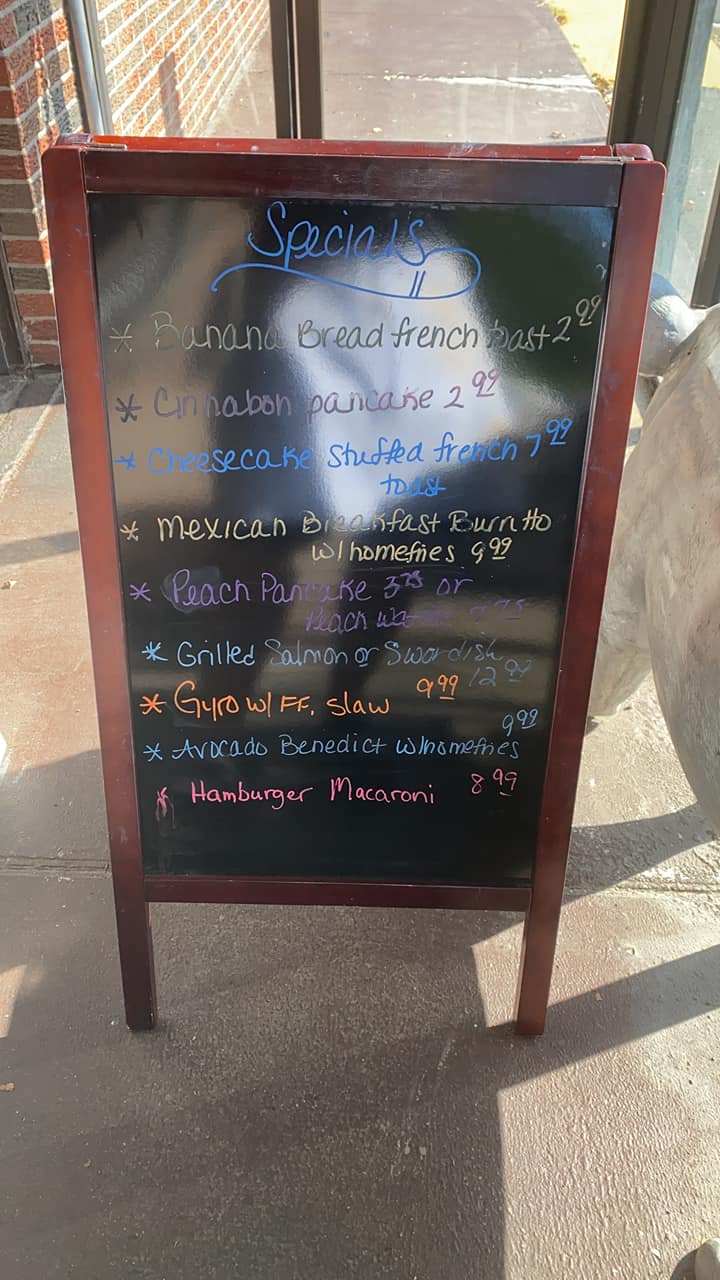 Specials
* Banana Bread french toast 2 99
* Cinnabon pancake 2 99
* Cheesecake Stuffed french 7 99
toast
* Mexican Breakfast Burrito
w/homefries 9 99
* Peach Pancake 3 75 or
Peach
* Grilled Salmon or Swordish
12 99
* Gyro w/ FF. slaw 9 99
9 99
* Avocado Benedict w/homefries
* Hamburger Macaroni 8 99